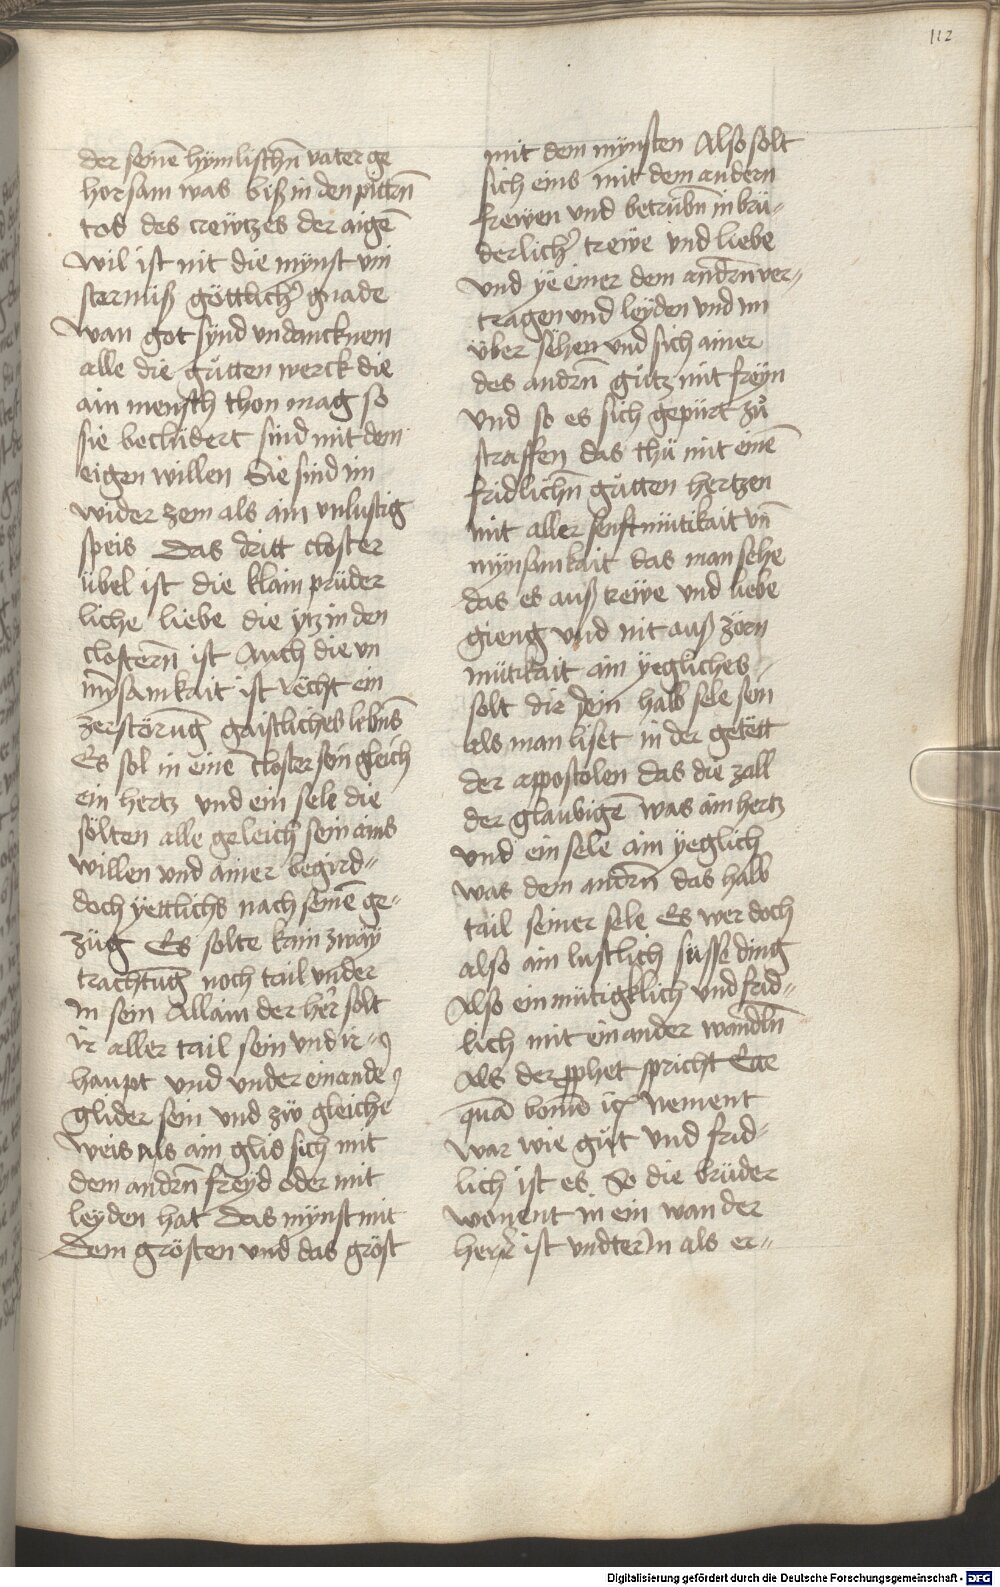 112
der seinē hymlischn̄ vater ge
horsam was biß in den pittrn̄
tod des crewtzes der aigē
wil ist nit die mynst vin
sternuß göttlich͛ gnade
wan got synd vndancknem
alle die gůtten werck die
ain mensch thon mag so
sie bechidert sind mit dem
eigen willen Sie sind im
wider zem als ain vnlustig
speis Das dritt closter
übel ist die klain prüder
liche liebe die ytz in den
clostern̄ ist Auch die vn
mȳsamkait ist recht ein
zerstörūg gaistliches lebn̄s
Es sol in einē closter sein gleich
ein hertz vnd ein sele die
sölten alle geleich sein ains
willen vnd ainer begird=
doch yettlichs nach seinē ge=
züg Es solte kain zway
trachtūg noch tail vnder
in sein Allain der her͛ solt
ir aller tail sein vnd ir=
haupt vnd vnder einande
glider sein vnd zü gleiche
weis als ain glid sich mit
dem andrn̄ freyd oder mit
leyden hat Das mynst mit
dem grösten vnd das gröst
mit dem mynsten Also solt
sich eins mit dem andern
frewen vnd betrübn̄ in brü=
derlich͛ trewe vnd liebe
vnd ye einer dem andrn̄ ver=
tragen vnd leyden vnd im
über sehen vnd sich ainer
des andrn̄ gütz mit freyn
vnd so es sich gepürt zů
straffen das thü mit einē
fridlichn̄ gůtten hertzen
mit aller senftmütikait vn̄
mynsamkait das man sehe
das es auß trewe vnd liebe
gieng vnd nit auß zörn
mütikait ain yegliches=
solt dir sein halb sele sein
als man liset in der getett
der appostolen das die zall
der glaubigē was ain hertz
vnd ein sele ain yeglich
was dem andrn̄ das halb
tail seiner sele Es wer doch
also ain lustlich süsse ding
Also ein mütigklich vnd frid=
lich mit ein ander wandln̄
Als der ꝓphet spricht Ecce
quā bonū ꝛc Nement
war wie gůt vnd frid=
lich ist es So die brüder
wonent in ein wan der
herr ist vnder in als er=
Digitalisierung gefördert durch die Deutsche Forschungsgemeinschaft - DFG